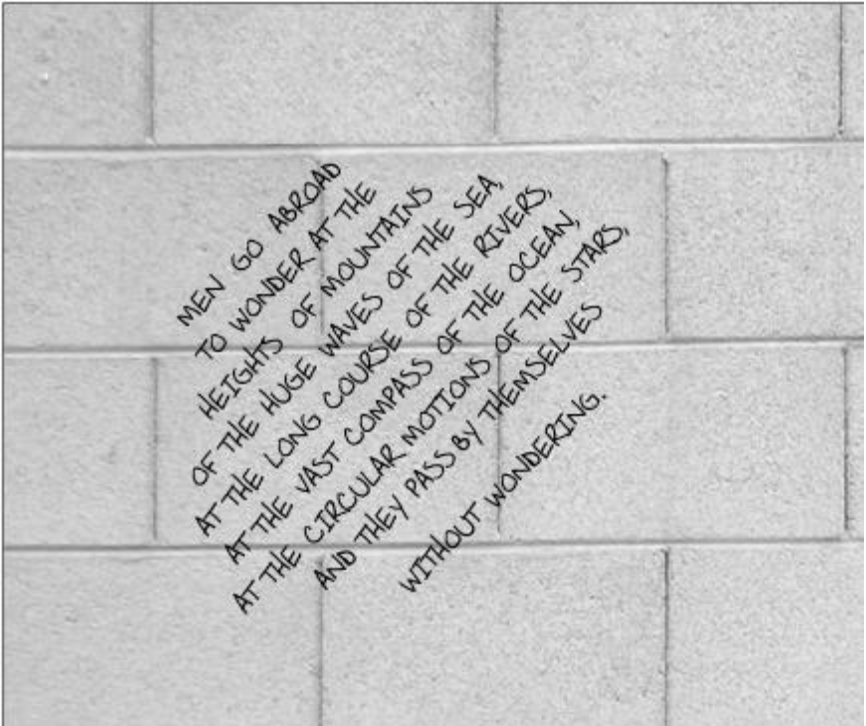 MEN GO ABROAD
TO WONDER AT THE
HEIGHTS OF MOUNTAINS
OF THE HUGE WAVES OF THE SEA,
AT THE LONG COURSE OF THE RIVERS,
AT THE VAST COMPASS OF THE OCEAN,
AT THE CIRCULAR MOTIONS OF THE STARS,
AND THEY PASS BY THEMSELVES
WITHOUT WONDERING.